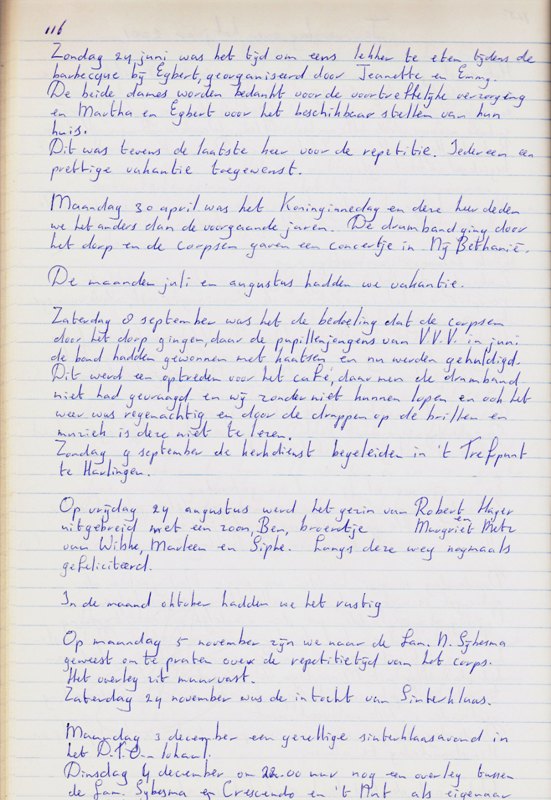 116
Zondag 24 juni was het tijd om eens lekker te eten tijdens de
barbecque bij Egbert, georganiseerd door Jeanette en Emmy.
De beide dames worden bedankt voor de voortreffelijke verzorging
en Martha en Egbert voor het beschikbaar stellen van hun
huis.
Dit was tevens de laatste keer voor de repetitie. Iedereen een
prettige vakantie toegewenst.
Maandag 30 april was het Koninginnedag en deze keer deden
we het anders dan de voorgaande jaren. De drumband ging door
het dorp en de corpsen gaven een concertje in Nij Bethanië.
De maanden juli en augustus hadden we vakantie.
Zaterdag 8 september was het de bedoeling dat de corpsen
door het dorp gingen, daar de pupillenjongens van V.V.V. in juni
de band hadden gewonnen met kaatsen en nu werden gehuldigd.
Dit werd een optreden voor het café, daar men de drumband
niet had gevraagd en wij zonder niet kunnen lopen en ook het
weer was regenachtig en door de druppen op de brillen en
muziek is deze niet te lezen.
Zondag 9 september de kerkdienst begeleiden in 't Trefpunt
te Harlingen.
Op vrijdag 24 augustus werd het gezin van Robert Hager
en
uitgebreid met een zoon, Ben, broertje Margriet Metz
van Wibke, Marleen en Sipke. Langs deze weg nogmaals
gefeliciteerd.
In de maand oktober hadden we het rustig
Op maandag 5 november zijn we naar de fam. N. Sijbesma
geweest om te praten over de repetitietijd van het corps.
Het overleg zit muurvast.
Zaterdag 24 november was de intocht van Sinterklaas.
Maandag 3 december een gezellige sinterklaasavond in
het D.T.O. lokaal.
Dinsdag 4 december om 22.00 uur nog een overleg tussen
de fam. Sijbesma en Crescendo en 't Nut als eigenaar